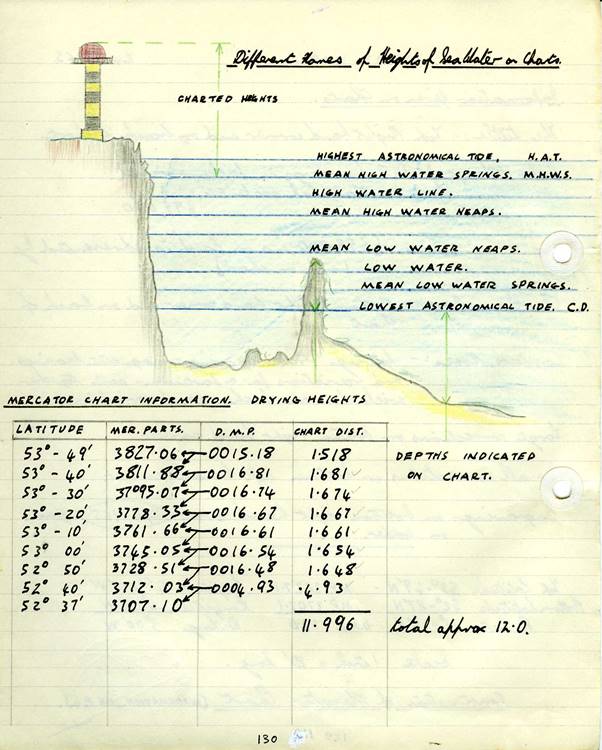 Different Names of Heights of Sea Water on Charts.
CHARTED HEIGHTS
HIGHEST ASTRONOMICAL TIDE, H.A.T.
MEAN HIGH WATER SPRINGS. M.H.W.S.
HIGH WATER LINE.
MEAN HIGH WATER NEAPS.
MEAN LOW WATER NEAPS.
LOW WATER.
MEAN LOW WATER SPRINGS.
LOWEST ASTRONOMICAL TIDE. C.D.
MERCATOR CHART INFORMATION. DRYING HEIGHTS
LATITUDE MER. PARTS. D.M.P. CHART DIST.
53° - 49' 3827.06 0015.18 1.518
53° - 40' 3811.88 0016.81 1.681
53° - 30' 37095.07 0016.74 1.674
53° - 20' 3778.33 0016.67 1.667
53° - 10' 3761.66 0016.61 1.661
53° 00' 3745.05 0016.54 1.654
52° 50' 3728.51 0016.48 1.648
52° 40' 3712.03 0004.93 .4.93
52° 37' 3707.10
11.996 total approx 12.0.
DEPTHS INDICATED
ON CHART.
130